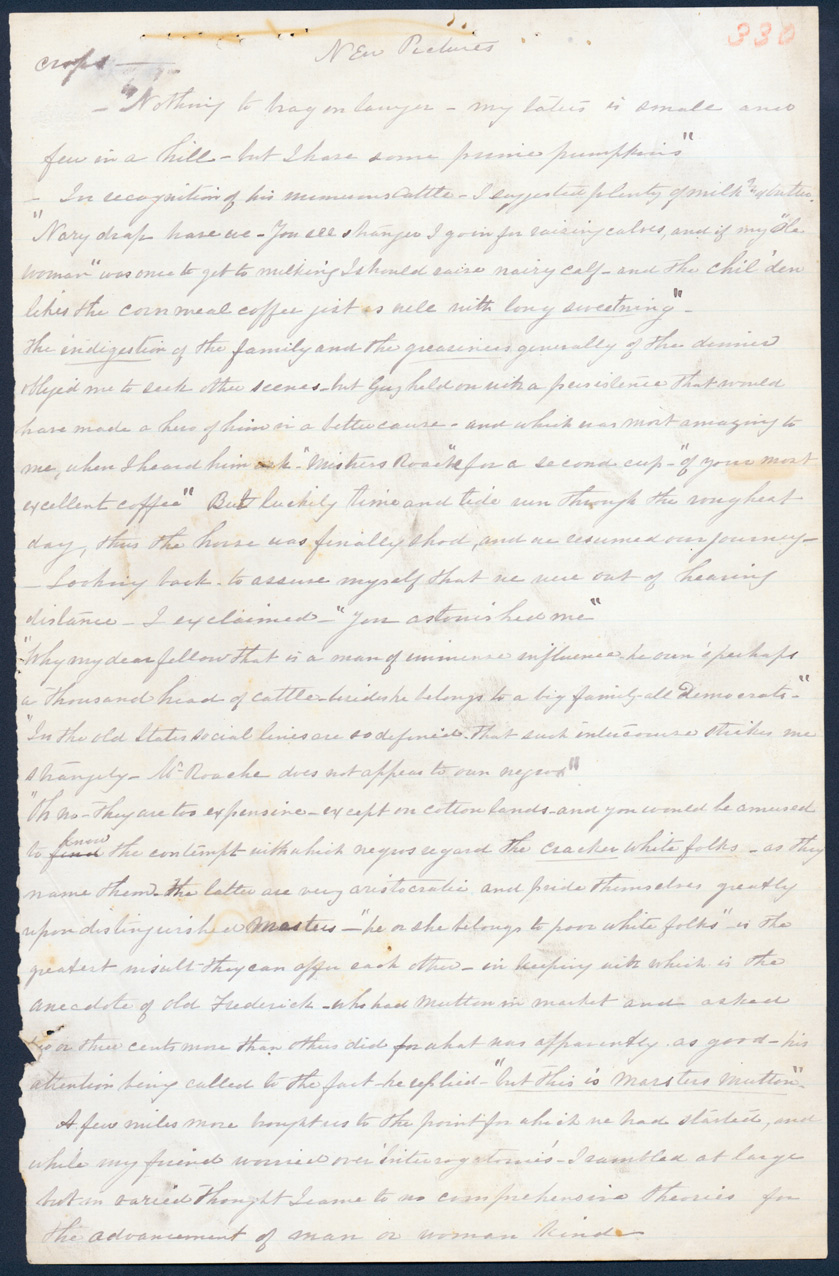 New Pictures 330
crops —
— "Nothing to brag on lawyer — my taters is small and
few in a hill — but I have some prime pumpkins"
— In recognition of his numerous cattle — I suggested plenty of milk & butter.
"Nary drap have we — You see stranger I go in for raising calves, and if my "Ole
woman" was once to get to milking I should raise nairy calf — and the chil'den
likes the corn meal coffee jist as well with long sweetning" —
The indigestion of the family and the greasiness generally of the dinner
obliged me to seek other scenes — but Guy held on with a persistence that would
have made a hero of him in a better cause — and which was most amazing to
me, when I heard him ask "Mistress Roach" for a second cup — "of your most
excellent coffee" But luckily time and tide run through the roughest
day, thus the horse was finally shod, and we resumed our journey —
— Looking back to assure myself that we were out of hearing
distance — I exclaimed — "You astonished me"
"Why my dear fellow that is a man of immense influence he own's perhaps
a thousand head of cattle — besides he belongs to a big family — all Democrats —"
"In the old States social lines are so defined that such intercourse strikes me
strangely — Mr Roache does not appear to own negros"
"Oh no — They are too expensive — except on cotton lands — and you would be amused
to find know the contempt with which negros regard the cracker white folks — as they
name them. The latter are very aristocratic and pride themselves greatly
upon distinguished Masters — "he or she belongs to poor white folks" — is the
greatest insult they can offer each other — in keeping with which is the
anecdote of old Frederick — who had mutton in market and asked
or three cents more than others did for what was apparently as good — his
attention being called to the fact — he replied — "but this is Marsters Mutton".
A few miles more brought us to the point for which we had started, and
while my friend worried over 'interrogatories' — I rambled at large
but in varied thought I came to no comprehensive theories for
the advancement of man or woman kind —